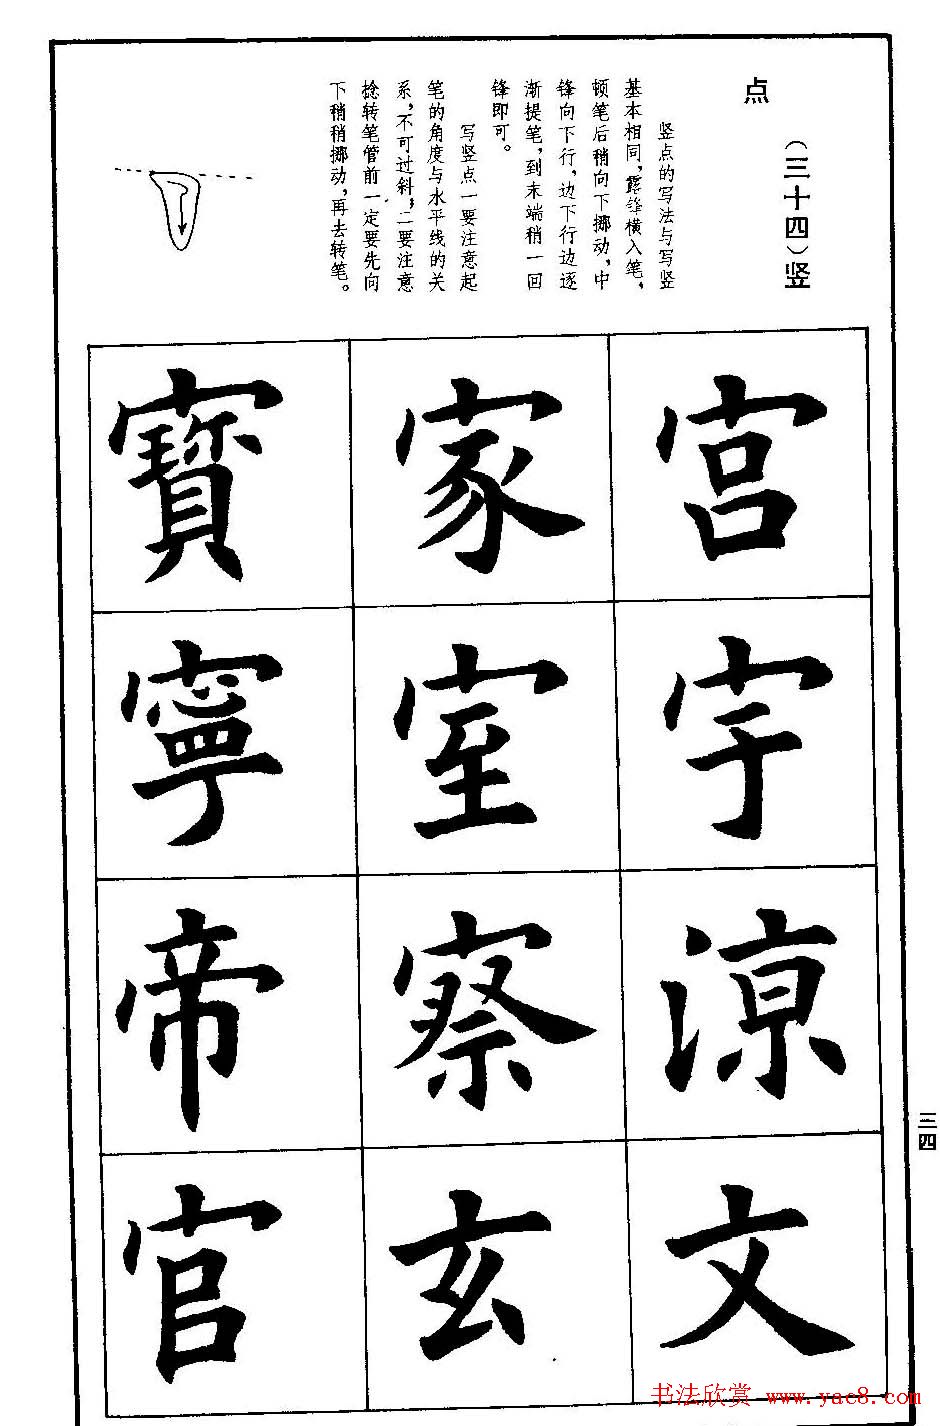 （三十四）竖
点
竖点的写法与写竖
基本相同，露锋横入笔，
顿笔后稍向下挪动，中
锋向下行，边下行边逐
渐提笔，到末端稍一回
锋即可。
写竖点一要注意起
笔的角度与水平线的关
系，不可过斜；二要注意
捻转笔管前一定要先向
下稍稍挪动，再去转笔。
宫
宇
涼
文
家
室
察
玄
寶
寧
帝
官
三四
书法欣赏 www.yac8.com